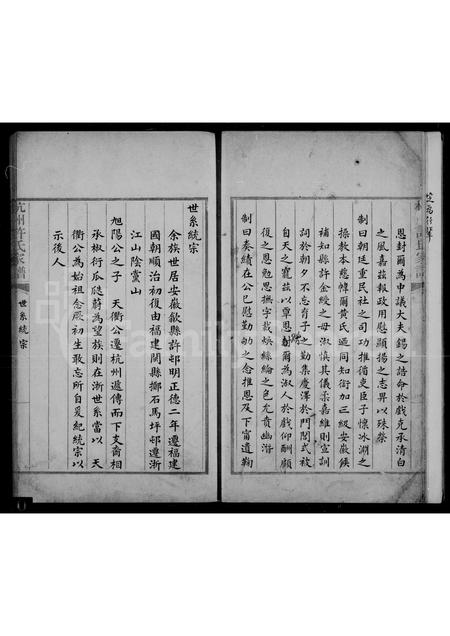 恩封爾為中議大夫錫之誥命於戲克承清白
之風嘉茲報政用慰顯揚之志畀以殊榮
制曰朝廷重民社之司功推循吏臣子懷冰淵之
操教本慈幃爾黃氏迺同知銜加三級安徽候
補知縣許金綬之母淑慎其儀柔嘉維則宣訓
詞於朝夕不忘育子之勤集慶澤於門閭式被
自天之寵茲以覃恩封爾為淑人於戲仰酬顧
復之恩勉思撫字載煥絲綸之色允賁幽潛
制曰奏績在公已慰勤劬之念推恩及下甯遺鞠
杭州許氏家譜
世系統宗
世系統宗
余族世居安徽歙縣許邨明正德二年遷福建
國朝順治初復由福建閩縣擲石馬坪邨遷浙
江山陰黨山
旭陽公之子 天衢公遷杭州遞傳而下支裔相
承椒衍瓜瓞蔚為望族則在浙世系當以 天
衢公為始祖念厥初生敢忘所自爰紀統宗以
示後人